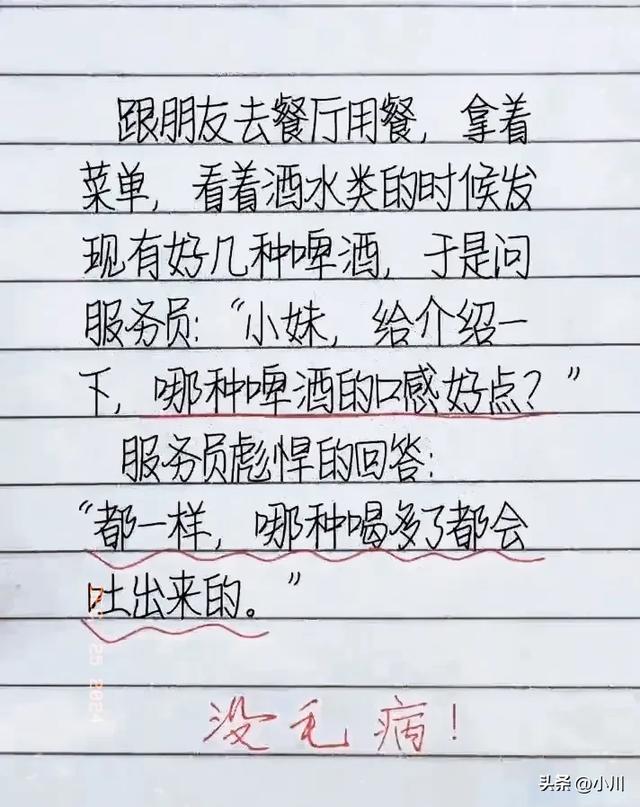 跟朋友去餐厅用餐，拿着
菜单，看着酒水类的时候发
现有好几种啤酒，于是问
服务员：“小妹，给介绍一
下，哪种啤酒的口感好点？”
服务员彪悍的回答：
“都一样，哪种喝多了都会
吐出来的。”
没毛病！
头条 @小川